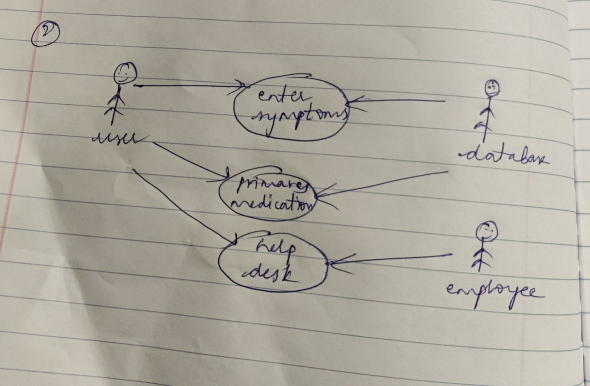 2
enter
symptoms
user
database
primary
medication
help
desk
employee